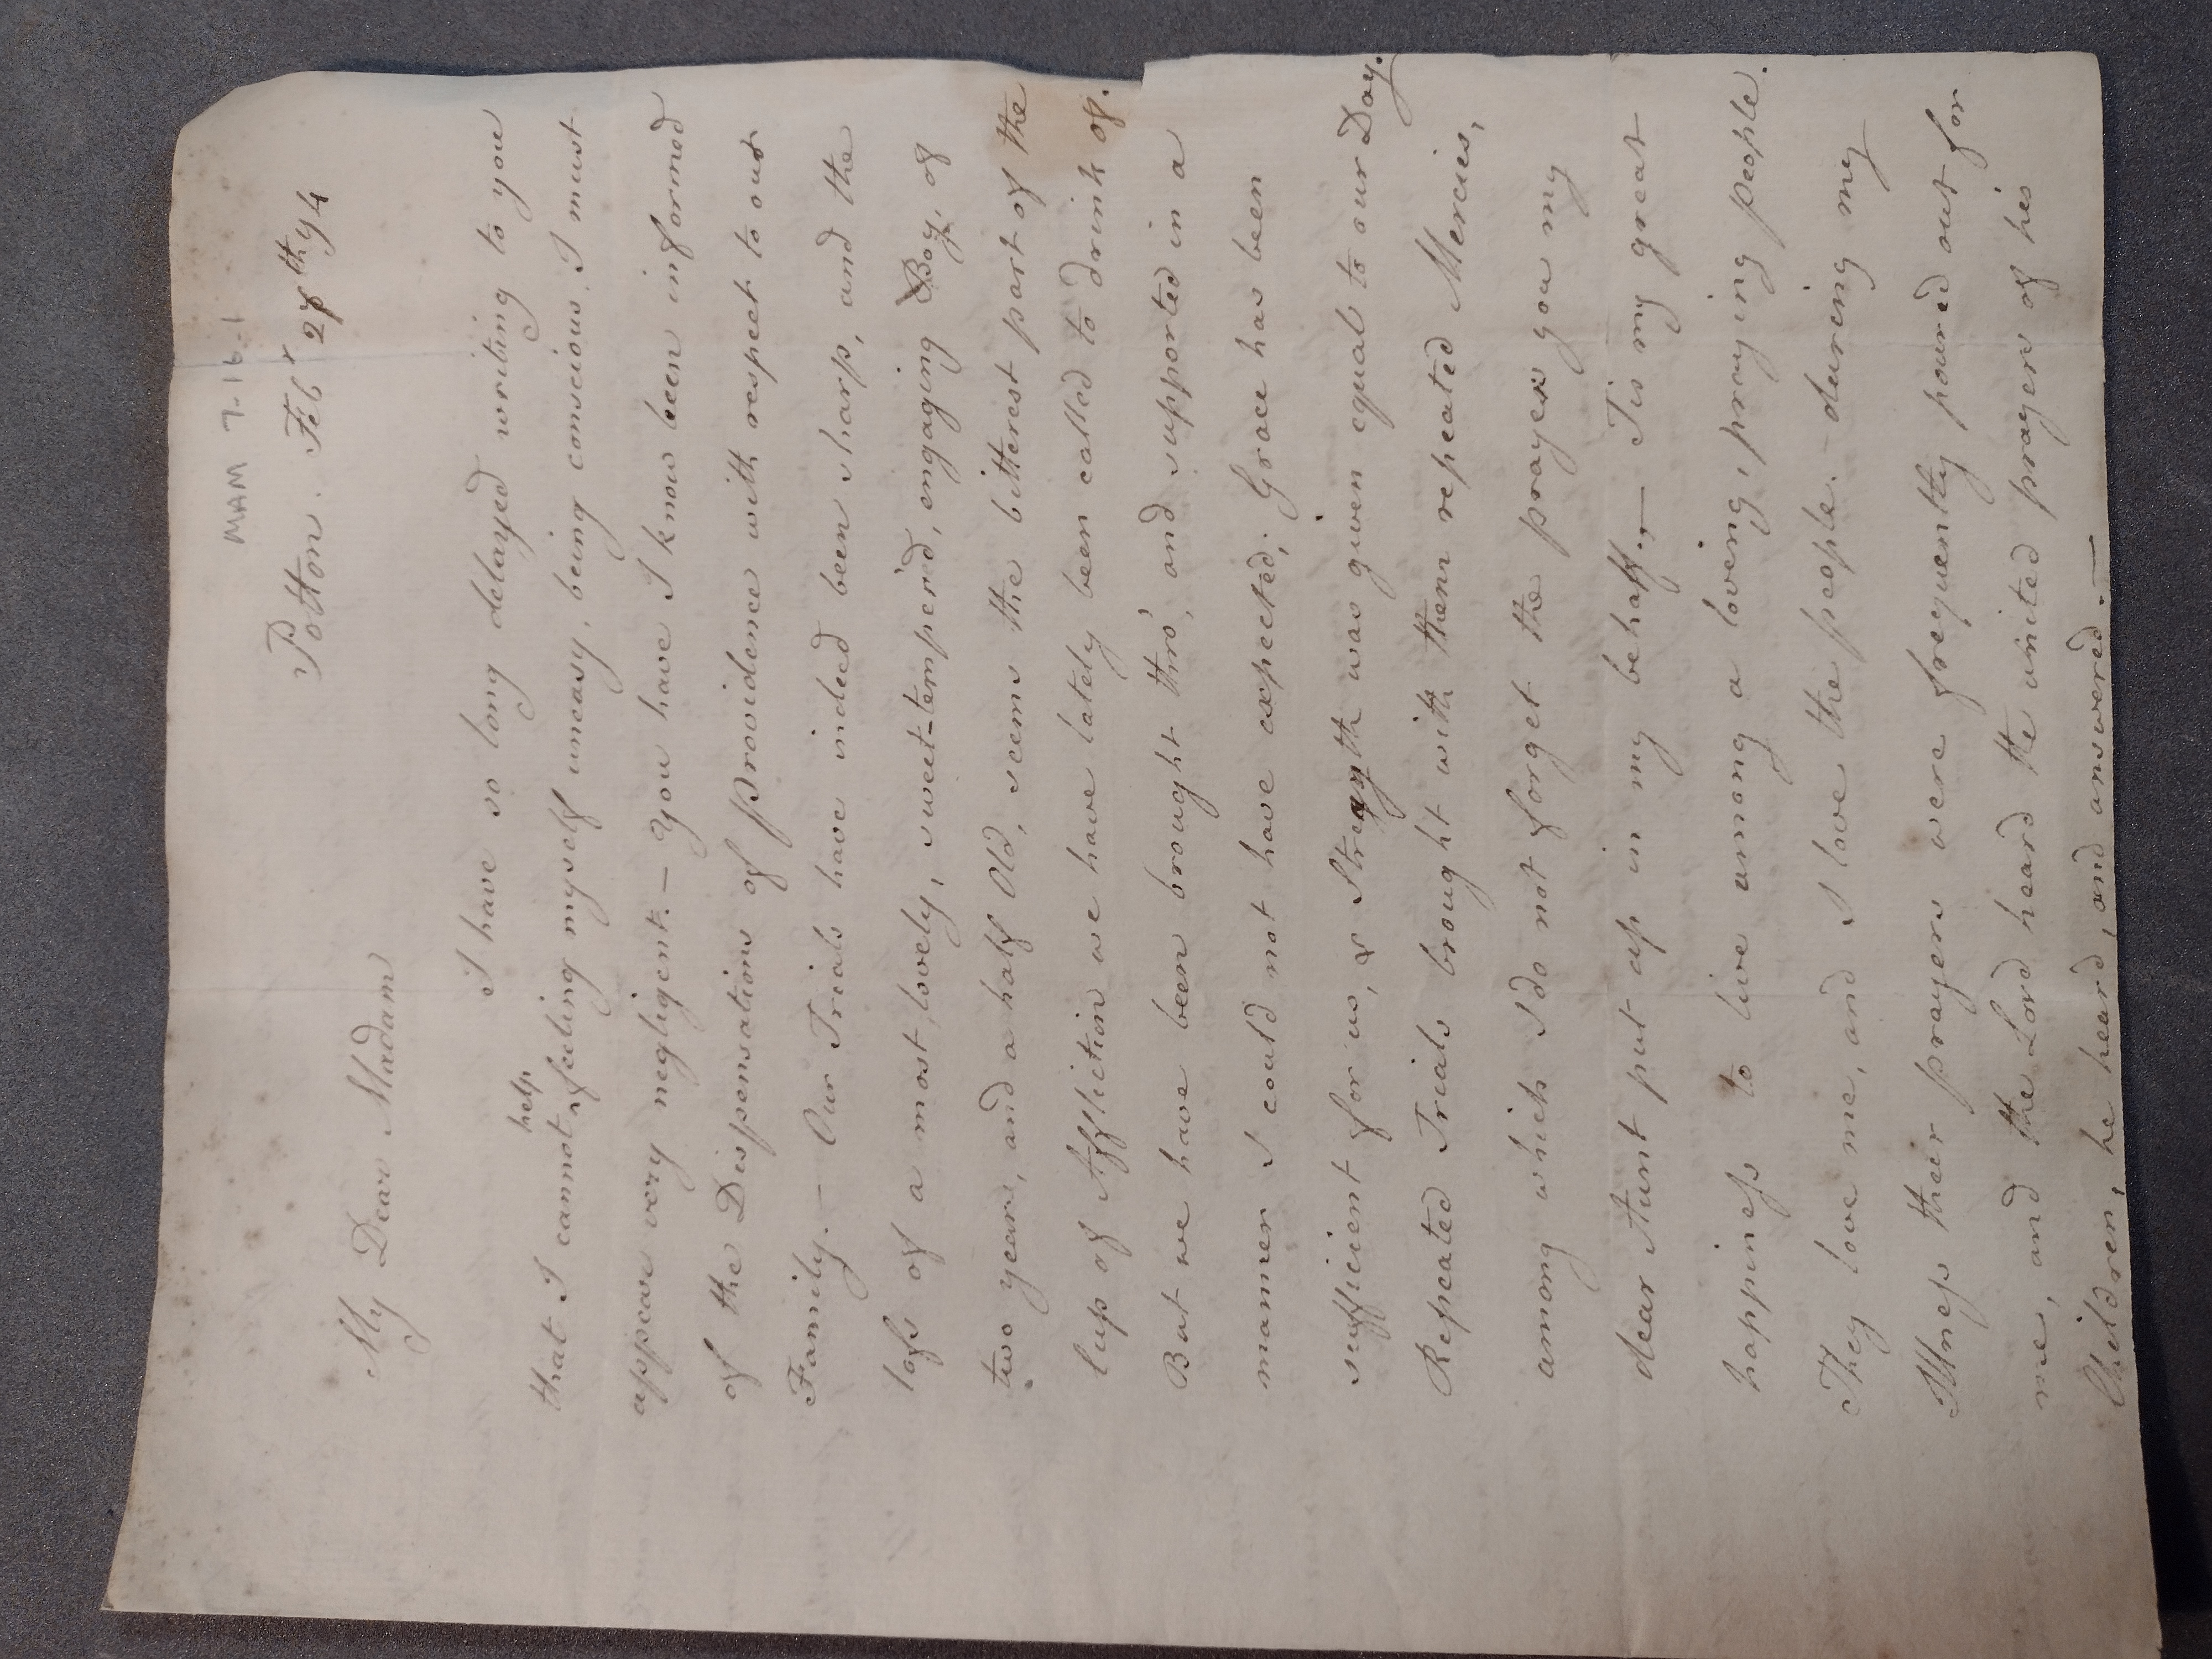 MAM 7-16-1
Potton. Febr 28th 94
My Dear Madam
I have so long delayed writing to you
help
that I cannot ^ feeling myself uneasy, being conscious I must
appear very negligent. — You have I know been informed
of the Dispensations of providence with respect to our
Family. — Our Trials have indeed been sharp, and the
loss of a most lovely, sweet-temper'd, engaging Boy, of
two years, and a half Old, seems the bitterest part of the
Cup of Affliction we have lately been called to drink of.
But we have been brought thro', and supported in a
manner I could not have expected; Grace has been
sufficient for us, & Strength was given equal to our Day.
Repeated Trials brought with them repeated Mercies,
among which I do not forget the prayers you my
dear Aunt put up in my behalf. — Tis my great
happiness to live among a loving, praying people.
They love me, and I love the people. during my
Illness their prayers were frequently poured out for
me, and the Lord heard the united prayers of his
Children, he heard, and answered. —